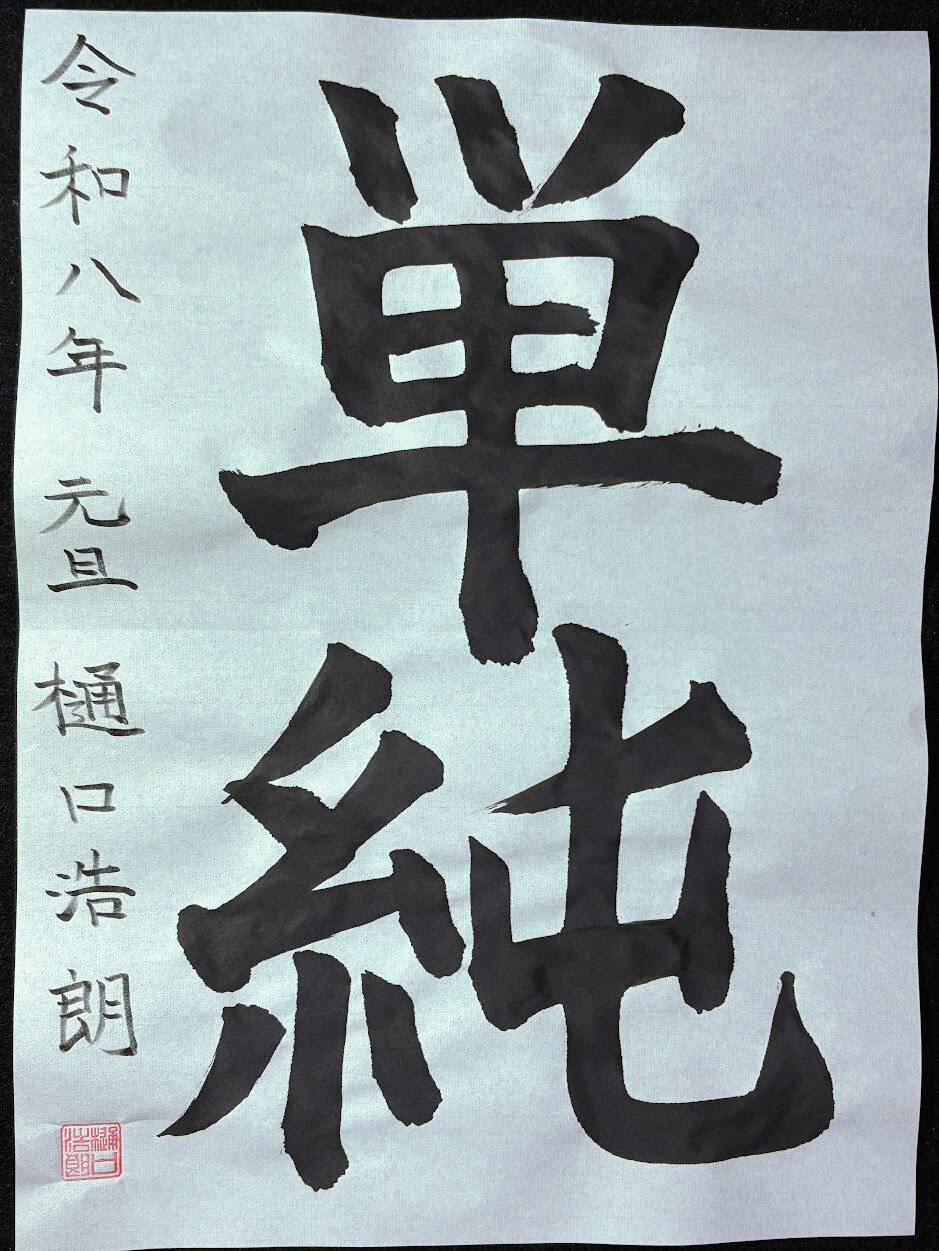 単純
令和八年 元旦 樋口浩朗
樋口
浩朗